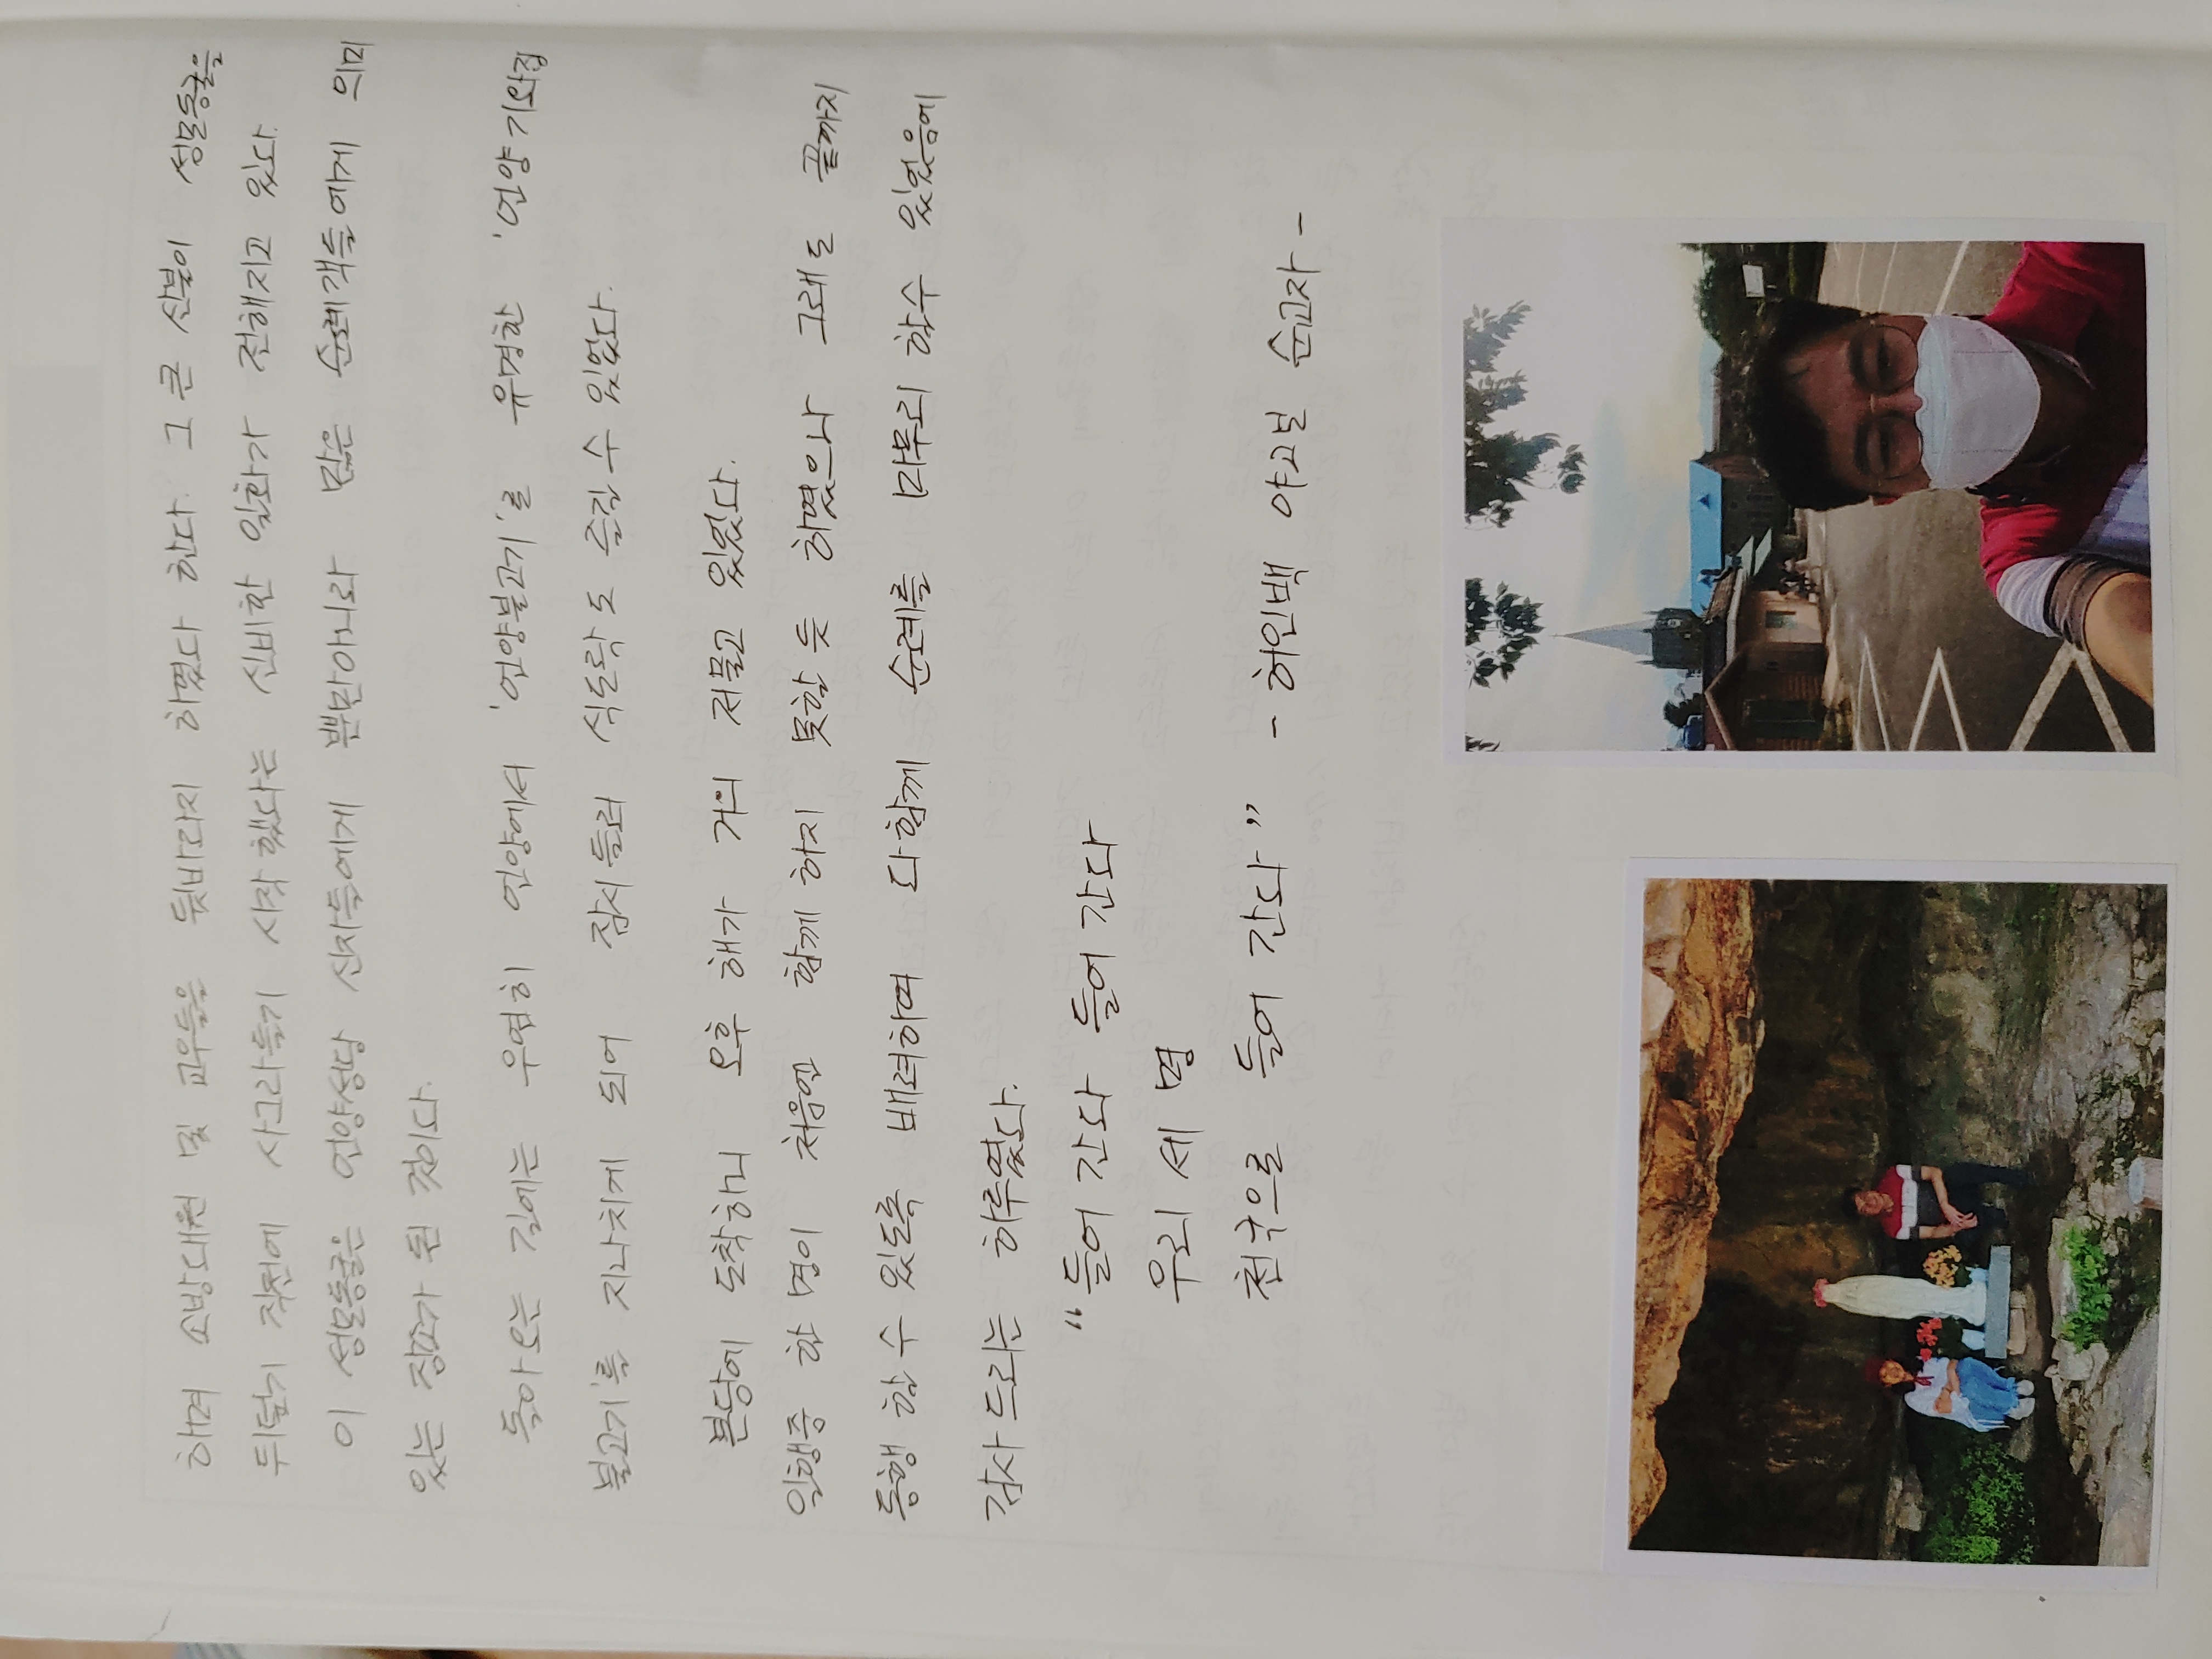 하며 소방대원 및 교우들을 뒷바라지 하였다 한다. 그 큰 산불이 성모동굴을
뒤덮기 직전에 사그라들기 시작 했다는 신비한 일화가 전해지고 있다.
이 성모동굴은 언양성당 신자들에게 뿐만아니라 많은 순례객들에게 의미
있는 장소가 된 것이다.
돌아오는 길에는 우연히 언양에서 '언양불고기'로 유명한 '언양기와집
불고기'를 지나치게 되어 잠시들러 식도락도 즐길 수 있었다.
본당에 도착하니 오후 해가 거의 저물고 있었다.
일행중 한 명이 처음엔 함께 하지 못할 듯 하였으나 그래도 끝까지
동행 할 수 있도록 배려하여 다함께 순례를 마무리 할수 있었음에
감사드리는 하루였다.
“들어 간다 들어 간다
우리 세 명
천국으로 들어 간다” - 허인백 야고보 순교자 -